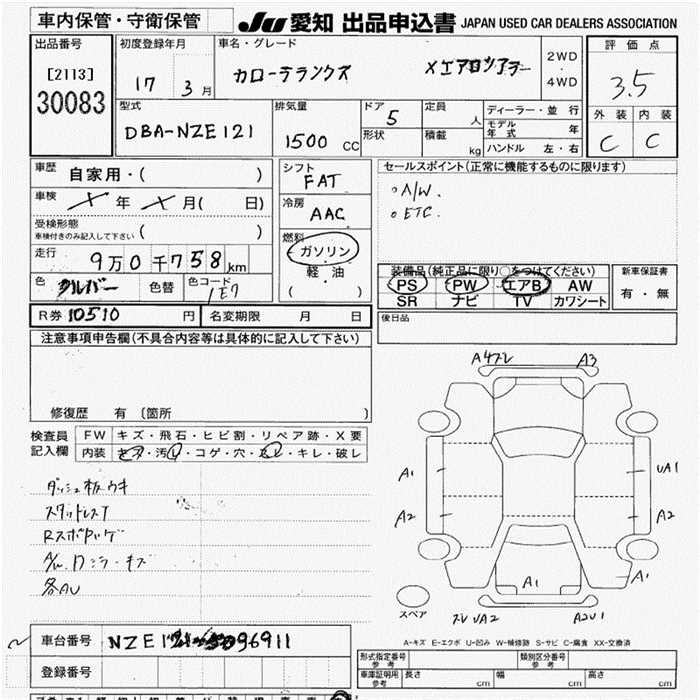 車内保管・守衛保管
JU 愛知 出品申込書 JAPAN USED CAR DEALERS ASSOCIATION
出品番号
[2113]
30083
初度登録年月
17 3月
車名・グレード
カローラランクス Xエアロツアラー
2WD
・
4WD
評価点
3.5
外装 内装
C C
型式
DBA-NZE121
排気量
1500 CC
ドア 5
形状
定員 人
積載 kg
ディーラー・並行
モデル年式 年
ハンドル 左・右
車歴
自家用・( )
車検
X年 X月( 日)
受検形態
車検付きのみ記入して下さい ( )
走行
9万0千758km
色 シルバー 色替 色コード 1E7
シフト
FAT
冷房
AAC
燃料
ガソリン
軽・油
( )
セールスポイント(正常に機能するものに限ります)
○A/W.
○ETC.
装備品(純正品に限り○をつけてください)
PS PW エアB AW
SR ナビ TV カワシート
新車保証書
有・無
R券 10510 円 名変期限 月 日
後日品
注意事項申告欄(不具合内容等は具体的に記入して下さい)
修復歴 有〔箇所 〕
検査員
記入欄
FW キズ・飛石・ヒビ割・リペア跡・X要
内装 キズ・汚れ・コゲ・穴・スレ・キレ・破レ
ダッシュ板ウキ
スタッドレスT
各AU
A4スレ A3
A1 UA1
A2 A2
A1 A1
スレUA2 A2U1
スペア
A-キズ E-エクボ U-凹み W-補修跡 S-サビ C-腐食 XX-交換済
車台番号 NZE121-5096911
登録番号
型式指定番号
参考
類別区分番号
参考
車庫証明用
参考
長さ cm 幅 cm 高さ cm